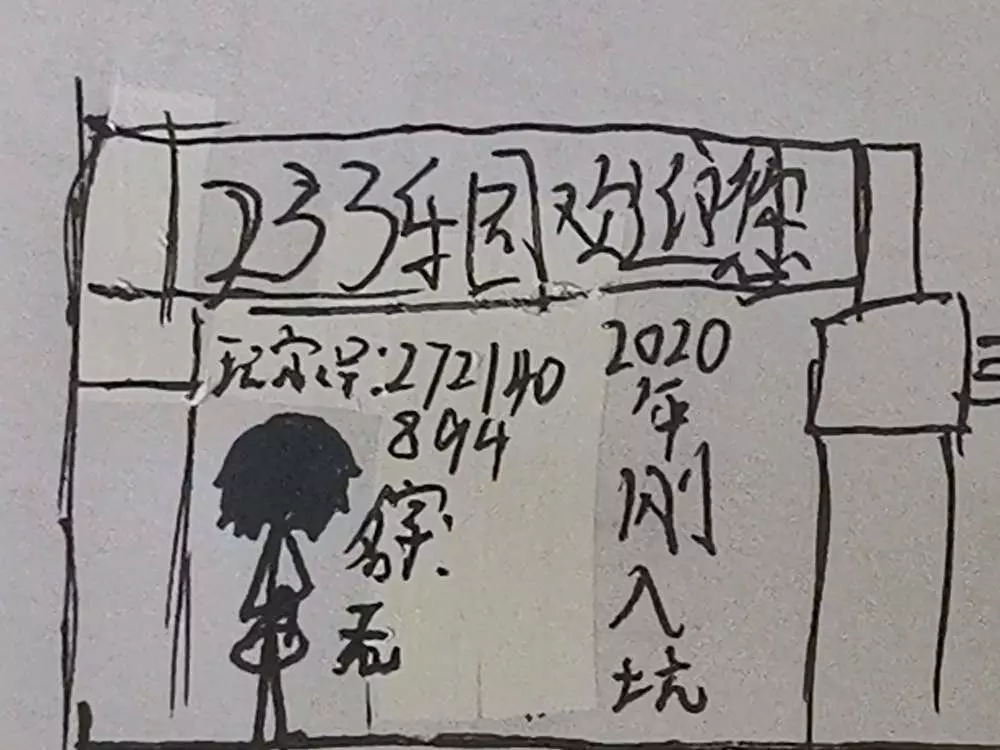 233乐园欢迎您
玩家号:272140
894
名字:
无
2020
年
刚
入
坑